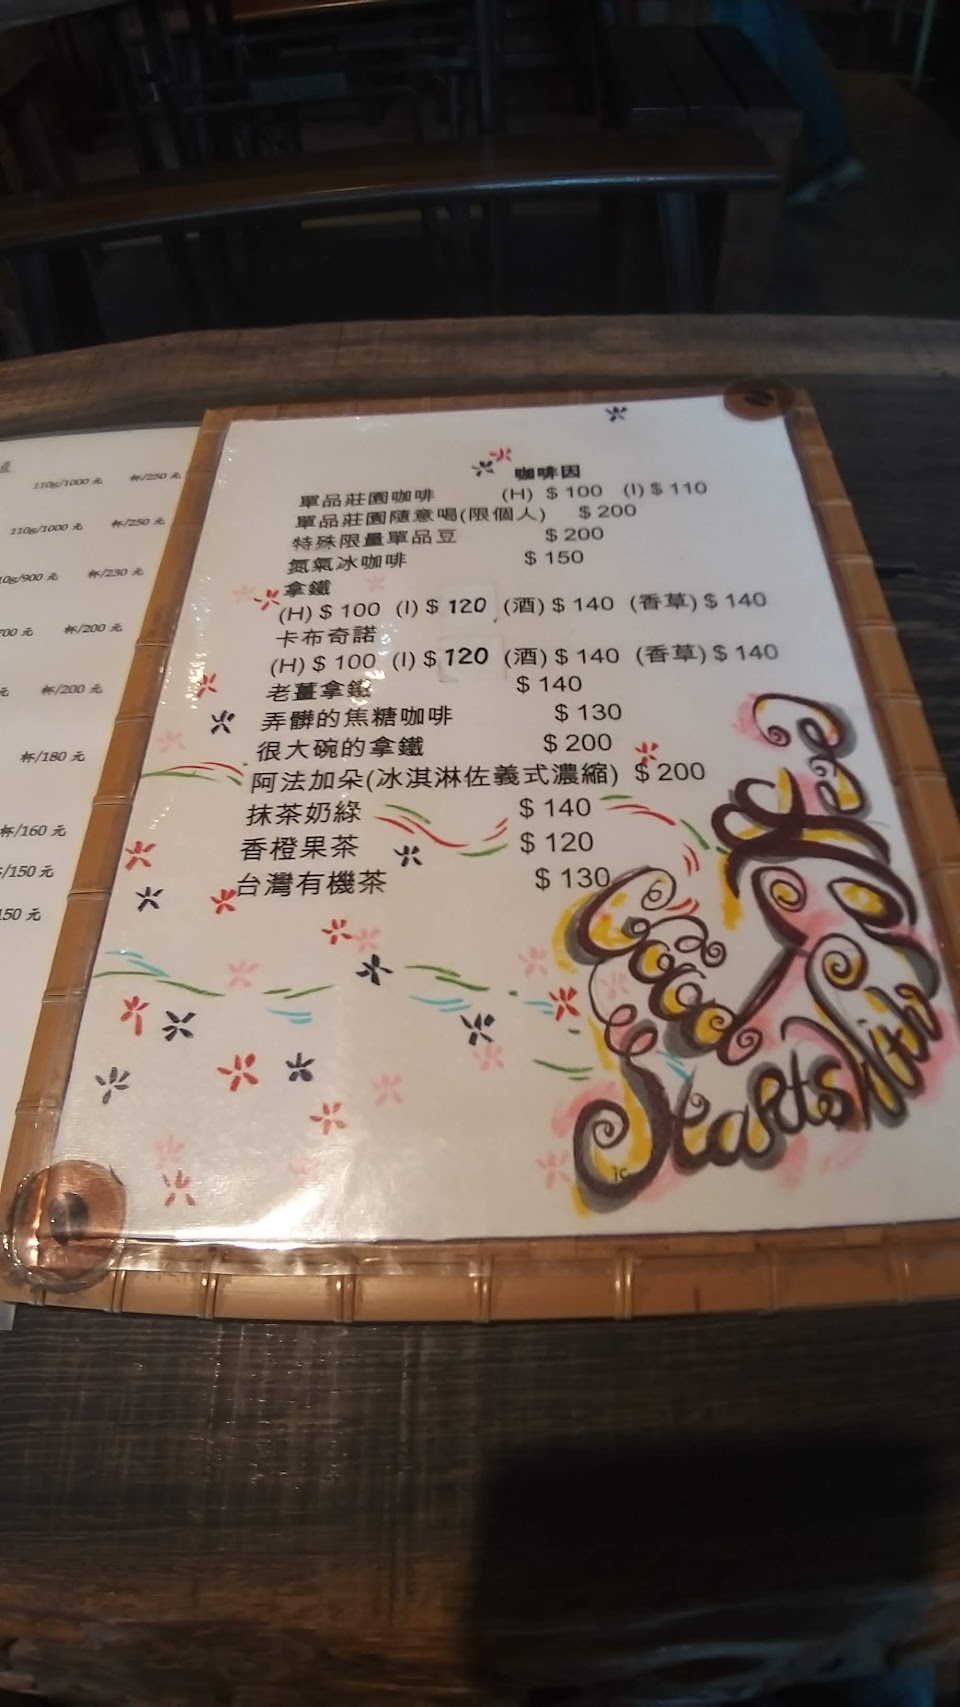 110g/1000 元 杯/250 元
110g/1000 元 杯/250 元
10g/900 元 杯/230 元
700 元 杯/200 元
元 杯/200 元
杯/180 元
杯/160 元
/150 元
150 元
咖啡因
單品莊園咖啡 (H) $ 100 (I) $ 110
單品莊園隨意喝(限個人) $ 200
特殊限量單品豆 $ 200
氮氣冰咖啡 $ 150
拿鐵
(H) $ 100 (I) $ 120 (酒) $ 140 (香草) $ 140
卡布奇諾
(H) $ 100 (I) $ 120 (酒) $ 140 (香草) $ 140
老薑拿鐵 $ 140
弄髒的焦糖咖啡 $ 130
很大碗的拿鐵 $ 200
阿法加朵(冰淇淋佐義式濃縮) $ 200
抹茶奶綠 $ 140
香橙果茶 $ 120
台灣有機茶 $ 130
Good
Starts With
Coffee